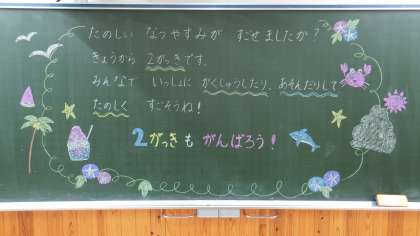 たのしい なつやすみが すごせましたか？
きょうから 2がっきです。
みんなで いっしょに がくしゅうしたり、あそんだりして
たのしく すごそうね！
2がっきも がんばろう！